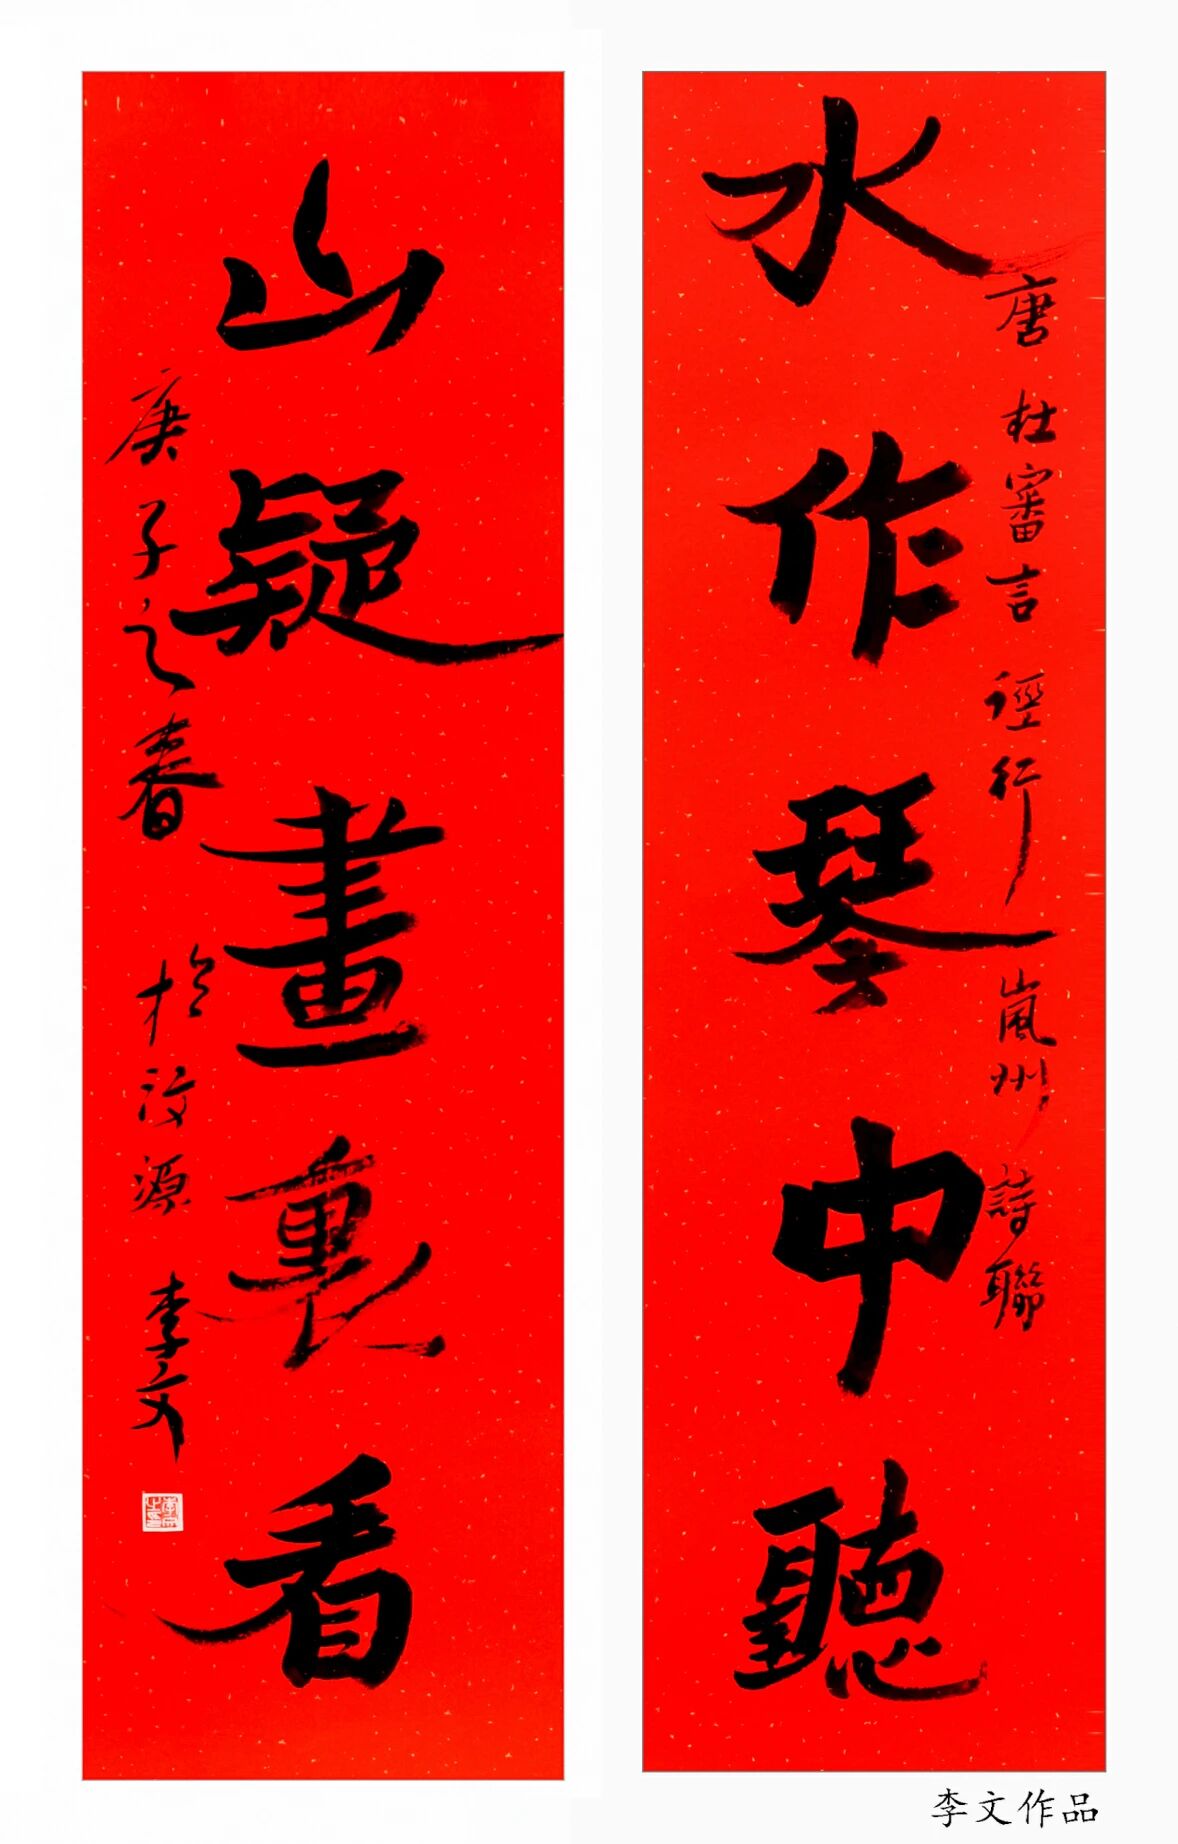 水作琴中聽
唐 杜審言 逕行 嵐州 詩聯
山疑畫裏看
庚子之春 於汶源 李文
李文作品